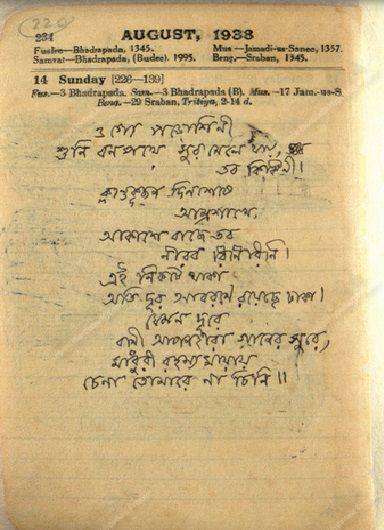 220
234 AUGUST, 1938
Fuslee—Bhadrapada, 1345. Mus—Jamadi-us-Sanee, 1357.
Samvat—Bhadrapada, (Budee). 1995. Beng.—Sraban, 1345.
14 Sunday [226—139]
Fus.—3 Bhadrapada. Sam.—3 Bhadrapada (B). Mus.—17 Jam.-us-S.
Beng.—29 Sraban, Tritiya, 2-14 d.
ওগো পড়োশিনী
শুনি বনপথে সুর মেলে যায়
তব কিঙ্কিণী।
ক্লান্তকূজন দিনশেষে
আম্রশাখে,
আকাশে বাজে তব
নীরব রিনিরিনি।
এই নিকটে থাকা
অতি দূর আবরণে রয়েছে ঢাকা।
যেমন দূরে
বাণী আপনহারা গানের সুরে,
মাধুরী রহস্য মায়ায়
চেনা তোমারে না চিনি॥